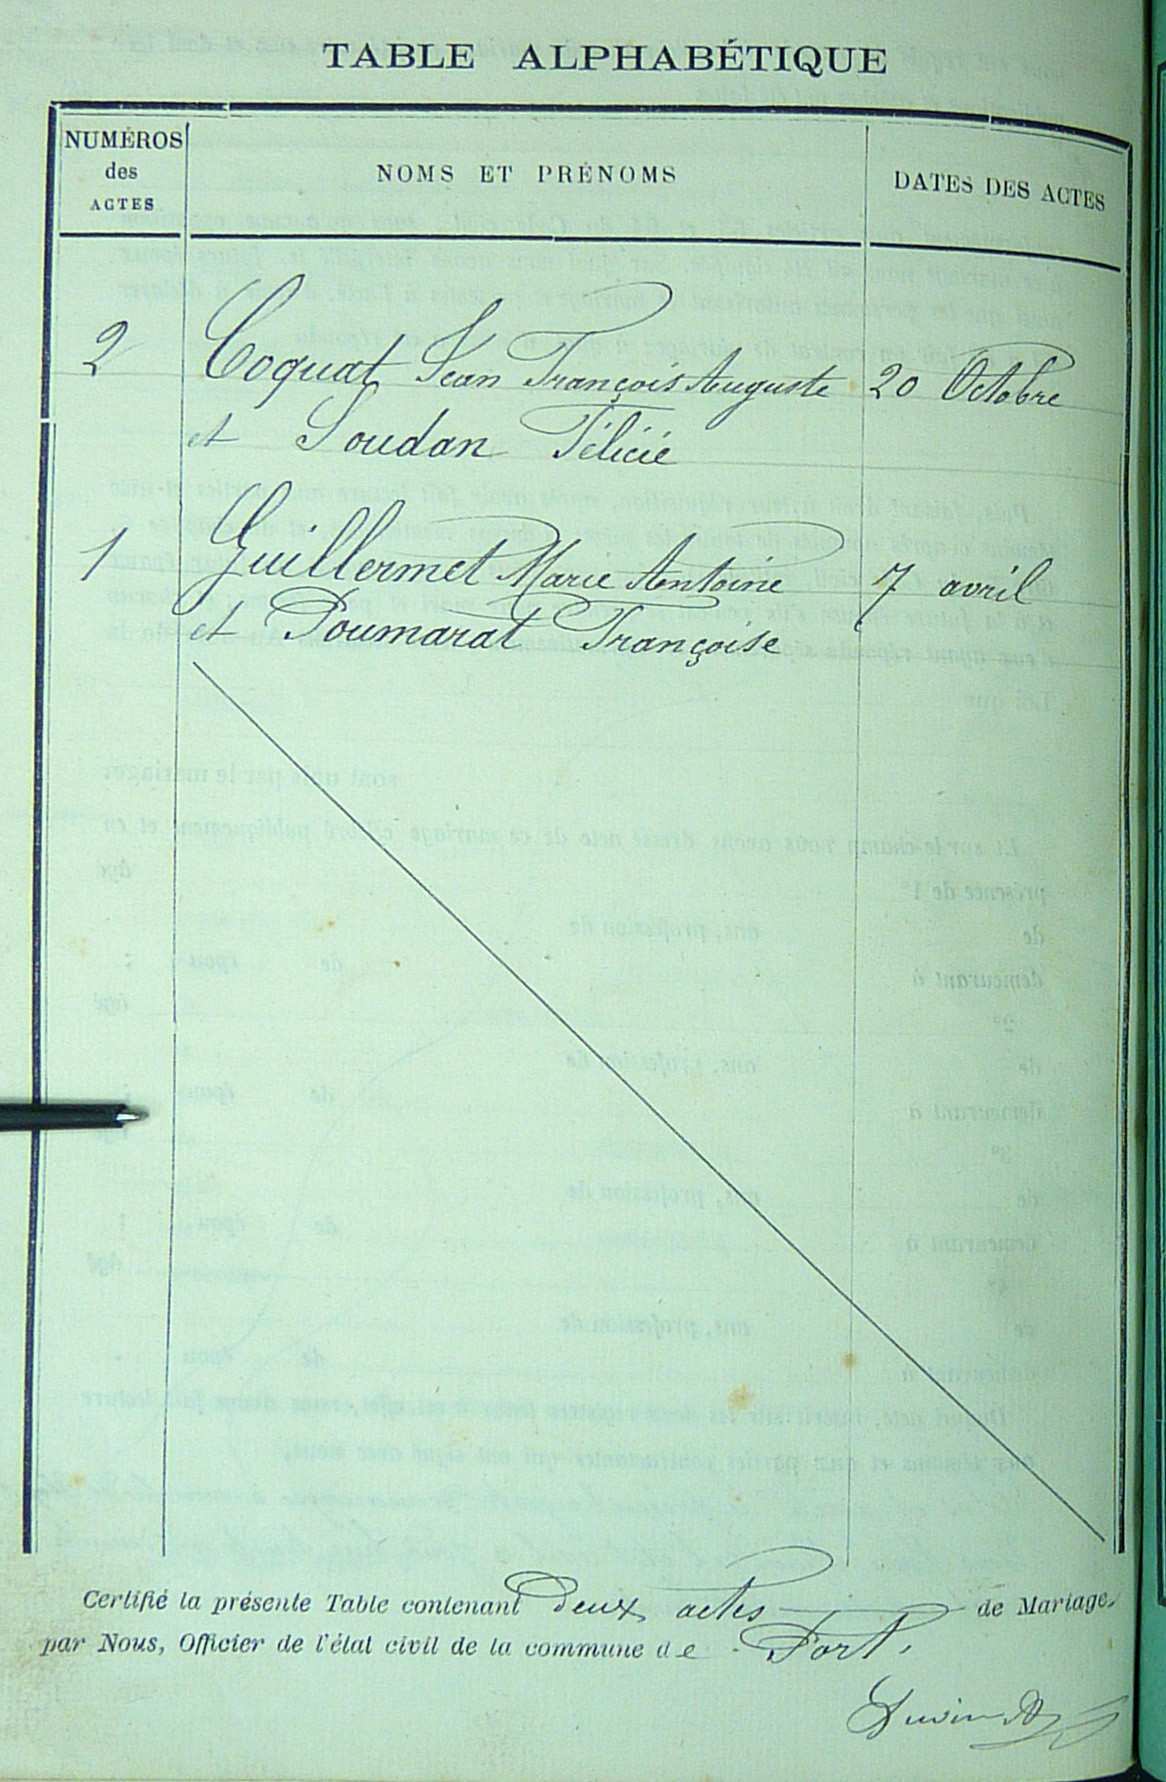 TABLE ALPHABÉTIQUE
NUMÉROS
des
ACTES
NOMS ET PRÉNOMS
DATES DES ACTES
2 Coquat Jean François Auguste 20 Octobre
et Soudan Félicie
1 Guillermet Marie Antoine 7 avril
et Poumarat Françoise
Certifié la présente Table contenant deux actes de Mariage,
par Nous, Officier de l'état civil de la commune de Port.